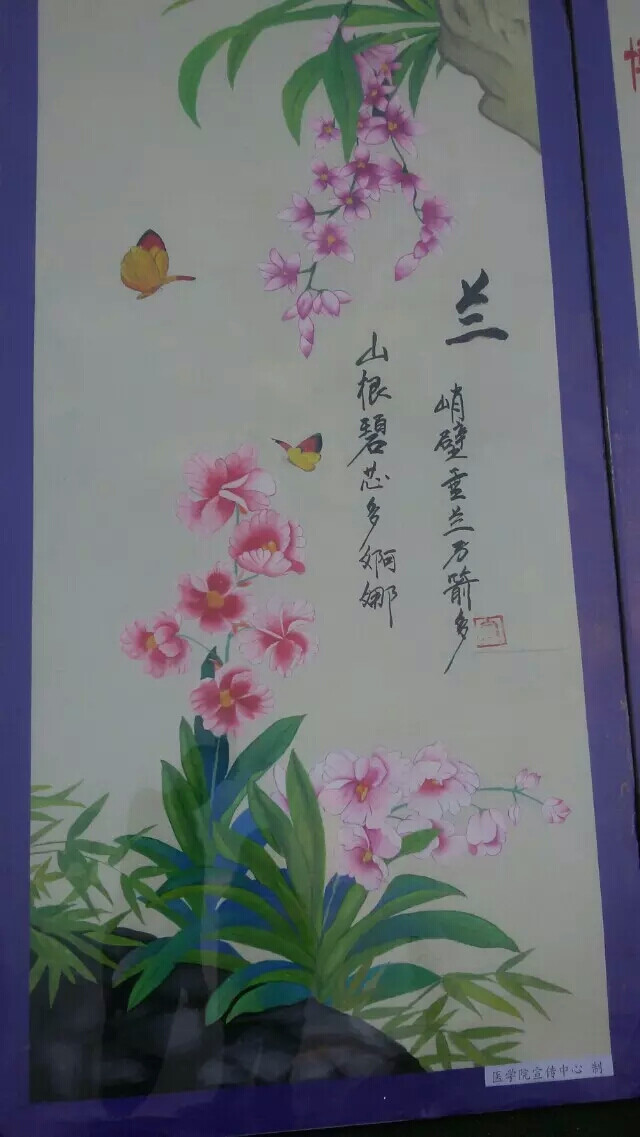 兰
峭壁垂兰万箭多
山根碧芯多婀娜
医学院宣传中心 制